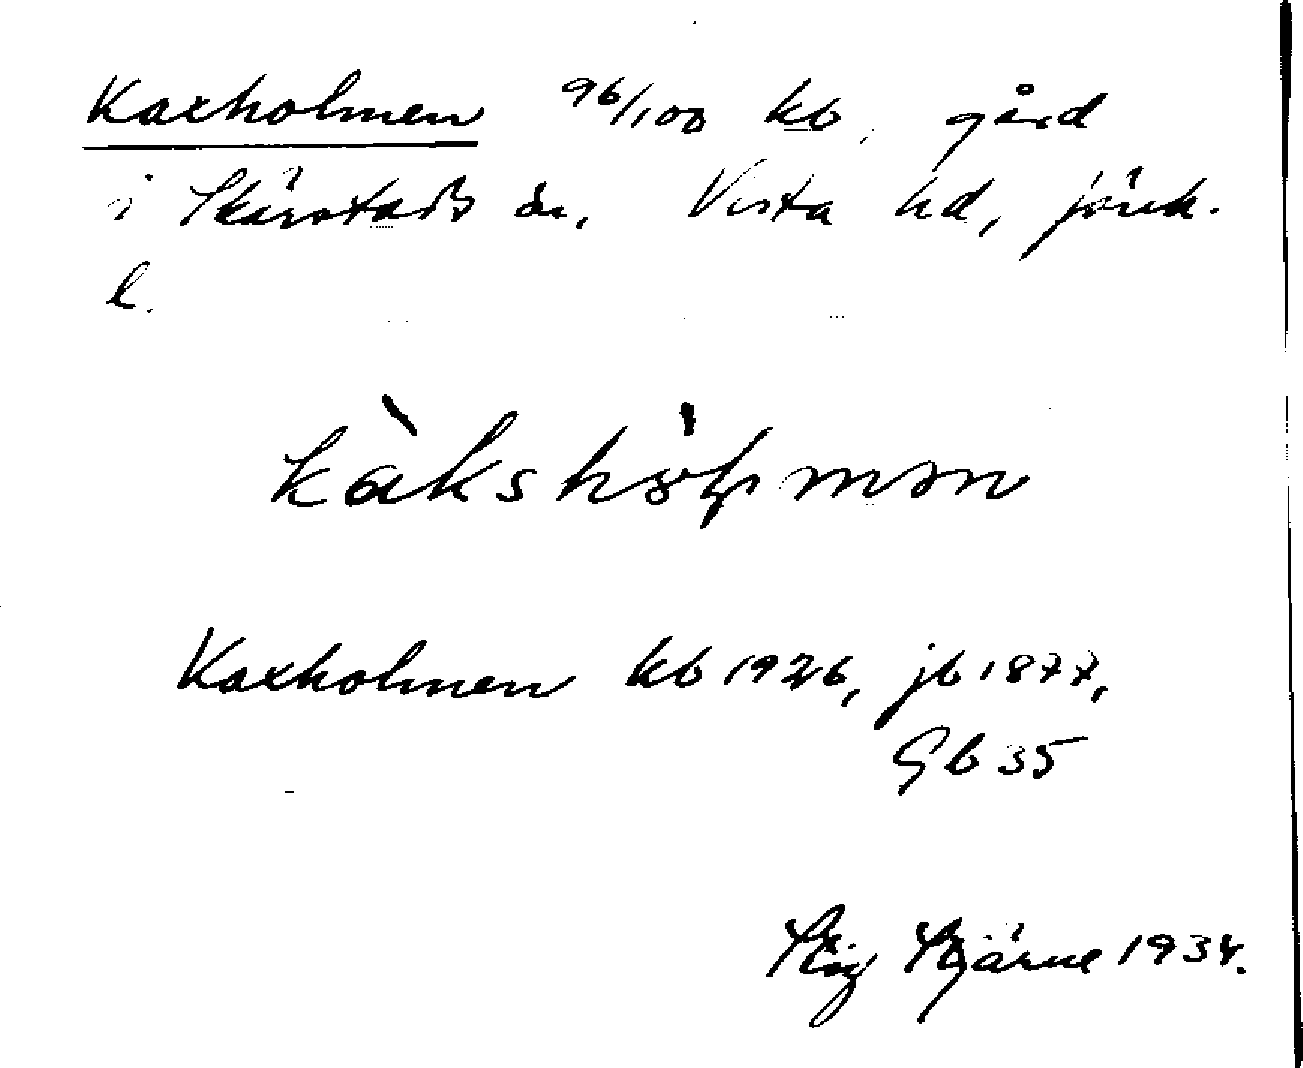 Kaxholmen 96/100 kb, gård
i Skärstads sn, Vista hd, Jönk.
l.
kàkshòlmən
Kaxholmen kb 1926, jb 1877,
Gb 35
Stig Stjärne 1934.